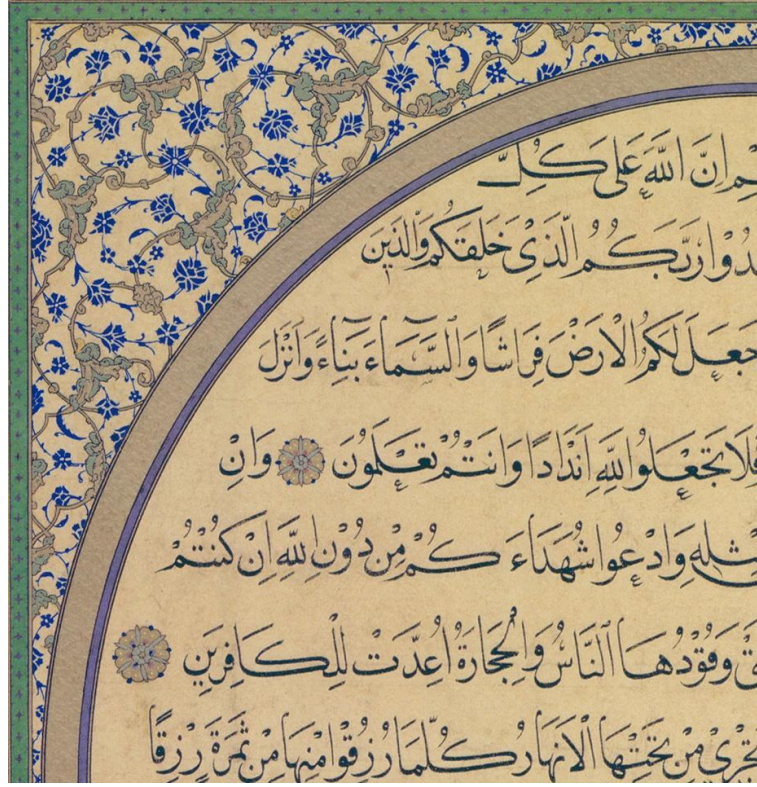 اِنَّ اللّٰهَ عَلٰى كُلِّ
رَبَّكُمُ الَّذٖى خَلَقَكُمْ وَالَّذٖينَ
جَعَلَ لَكُمُ الْاَرْضَ فِرَاشًا وَالسَّمَٓاءَ بِنَٓاءً وَاَنْزَلَ
فَلَا تَجْعَلُوا لِلّٰهِ اَنْدَادًا وَاَنْتُمْ تَعْلَمُونَ وَاِنْ
مِثْلِهٖ وَادْعُوا شُهَدَٓاءَكُمْ مِنْ دُونِ اللّٰهِ اِنْ كُنْتُمْ
وَقُودُهَا النَّاسُ وَالْحِجَارَةُ اُعِدَّتْ لِلْكَافِرٖينَ
تَجْرٖى مِنْ تَحْتِهَا الْاَنْهَارُ كُلَّمَا رُزِقُوا مِنْهَا مِنْ ثَمَرَةٍ رِزْقًا